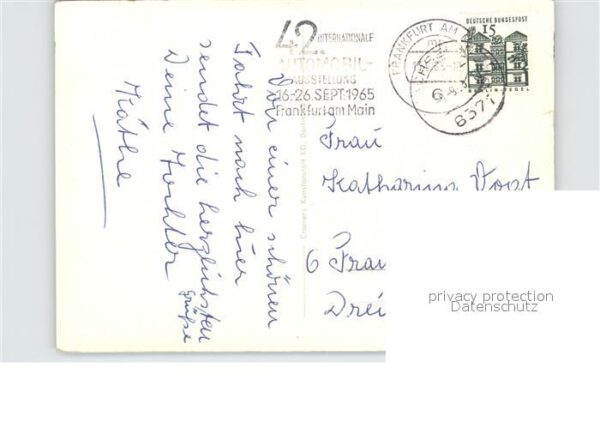 42. INTERNATIONALE
AUTOMOBIL-
AUSSTELLUNG
16.-26. SEPT. 1965
Frankfurt am Main
FRANKFURT AM
DEUTSCHE BUNDESPOST
15
6371
Von einer schönen
Fahrt nach hier
sendet die herzlichsten
Grüße
Deine Tochter
Käthe
Frau
Katharina Vogt
6 Fra
Drei
Cramers Kunstanstalt KG.
privacy protection
Datenschutz